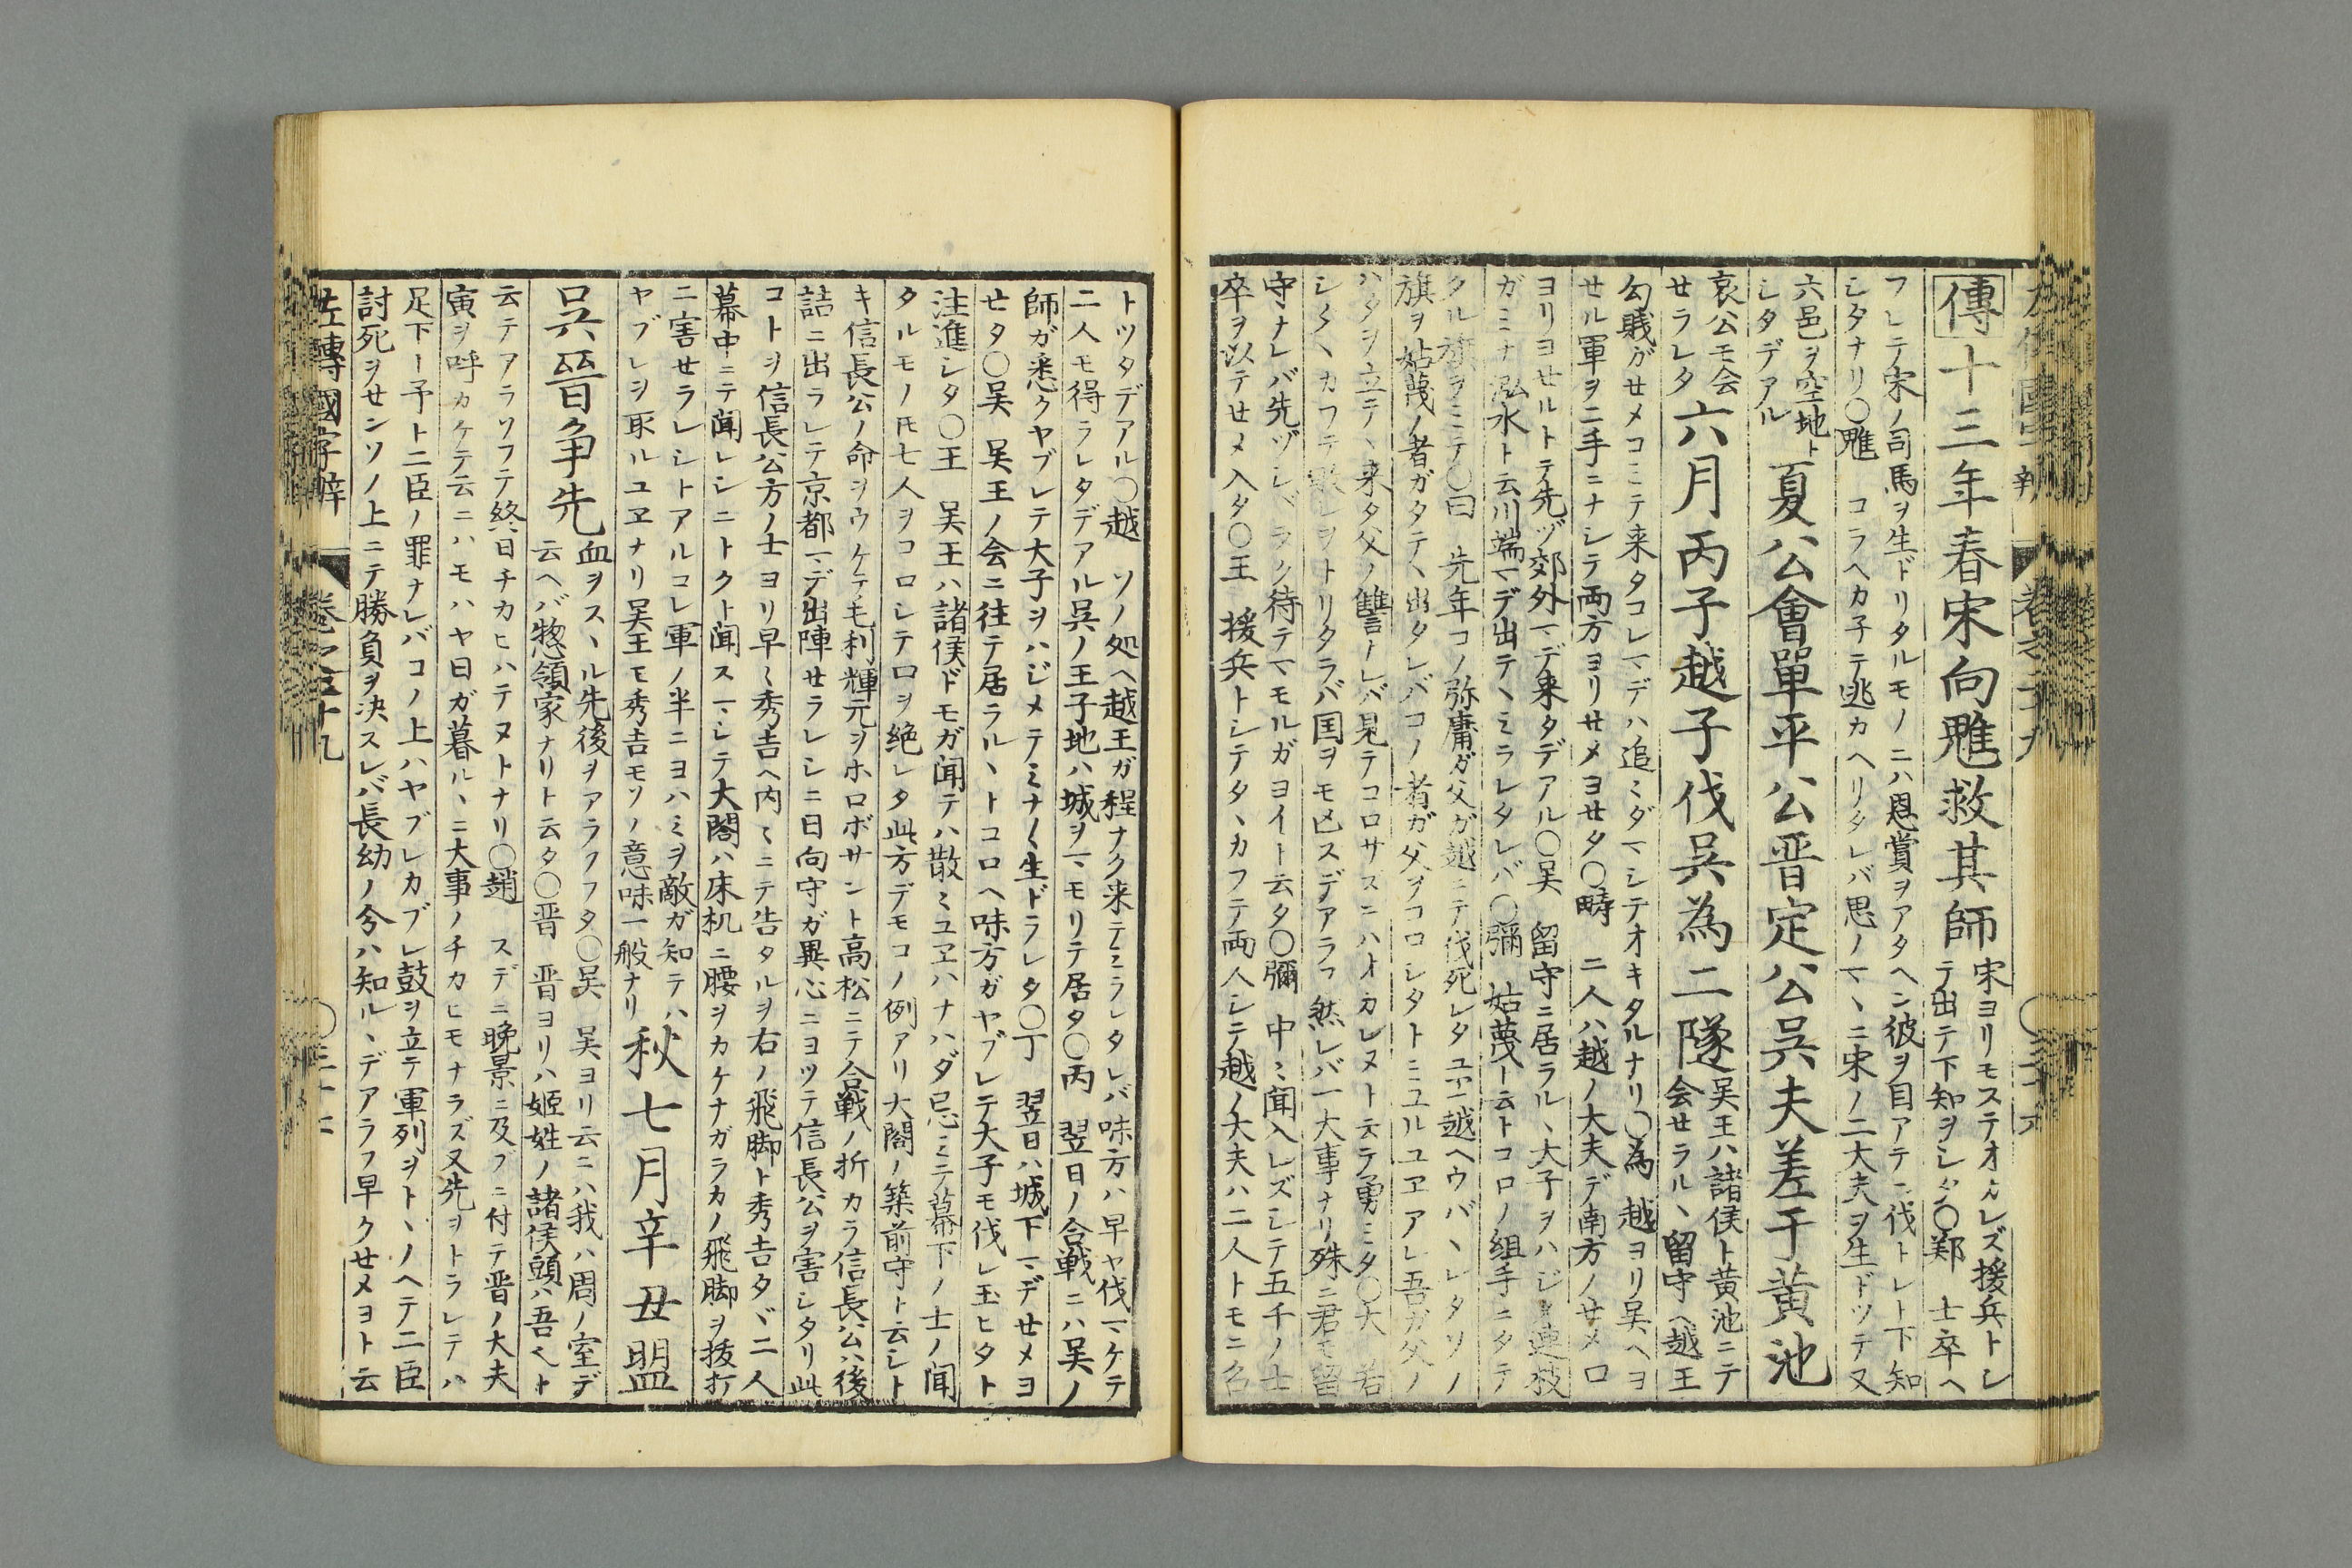 傳十三年春宋向魋救其師
宋ヨリモステオカレズ援兵トシ
テ出テ下知ヲシタ〇鄭 士卒ヘ
フレテ宋ノ司馬ヲ生ドリタルモノニハ恩賞ヲアタヘン彼ヲ目アテニ伐トレト下知
シタナリ〇魋 コラヘカ子テ逃カヘリタレバ思ノマヽニ宋ノ二大夫ヲ生ドツテ又
六邑ヲ空地ト
シタデアル
夏公會單平公晋定公吳夫差于黃池
哀公モ会
セラレタ
六月丙子越子伐吳為二隧
吴王ハ諸侯ト黄池ニテ
会セラルヽ留守ヘ越王
勾賎ガセメコミテ来タコレマデハ追ミダマシテオキタルナリ〇為 越ヨリ吴ヘヨ
セル軍ヲ二手ニナシテ両方ヨリせメヨせタ〇疇 二人ハ越ノ大夫デ南方ノせメ口
ヨリヨせルトテ先ヅ郊外マデ来タデアル〇吴 留守ニ居ラルヽ大子ヲハジメ連枝
ガミナ泓水ト云川端マデ出テヽミラレタレバ〇彌 姑蔑ト云トコロノ組手ニタテ
タル旗ヲミテ〇曰 先年コノ弥庸ガ父ガ越ニテ伐死レタユヱ越ヘウバヽレタソノ
旗ヲ姑蔑ノ者ガタテヽ出タレバコノ者ガ父ヲコロシタトミユルユヱアレ吾ガ父ノ
ハタヲ立テヽ来タ父ノ讐ナレバ見テコロサズニハオカレヌト云テ勇ミタ〇大 若
シタヽカフテ敗レヲトリタラバ国ヲモ亡スデアラフ然レバ一大事ナリ殊ニ君モ留
守ナレバ先ヅシバラク待テマモルガヨイト云タ〇彌 中ミ聞入レズシテ五千ノ士
卒ヲ以テせメ入タ〇王 援兵トシテタヽカフテ両人シテ越ノ大夫ハ二人トモニ名
トツタデアル〇越 ソノ処ヘ越王ガ程ナク来テミラレタレバ味方ハ早ヤ伐マケテ
二人モ得ラレタデアル呉ノ王子地ハ城ヲマモリテ居タ〇丙 翌日ノ合戦ニハ吴ノ
師ガ悉クヤブレテ大子ヲハジメテミナ〱生ドラレタ〇丁 翌日ハ城下マデせメヨ
せタ〇吴 吴王ノ会ニ往テ居ラルヽトコロヘ味方ガヤブレテ大子モ伐レ玉ヒタト
注進シタ〇王 吴王ハ諸侯ドモガ聞テハ散ミユヱハナハダ忌ミテ幕下ノ士ノ聞
タルモノ𪜈七人ヲコロシテ口ヲ絶レタ此方デモコノ例アリ大閤ノ築前守ト云シト
キ信長公ノ命ヲウケテ毛利輝元ヲホロボサント高松ニテ合戦ノ折カラ信長公ハ後
詰ニ出ラレテ京都マデ出陣せラレシニ日向守ガ異心ニヨツテ信長公ヲ害シタリ此
コトヲ信長公方ノ士ヨリ早ミ秀吉ヘ内ミニテ告タルヲ右ノ飛脚ト秀吉タヾ二人
幕中ニテ聞レシニトクト聞スマシテ大閤ハ床机ニ腰ヲカケナガラカノ飛脚ヲ抜打
ニ害せラレシトアルコレ軍ノ半ニヨハミヲ敵ガ知テハ
ヤブレヲ取ルユヱナリ吴王モ秀吉モソノ意味一般ナリ
秋七月辛丑盟
吳晉争先
血ヲスヽル先後ヲアラソフタ〇吴 吴ヨリ云ニハ我ハ周ノ室デ
云ヘバ惣領家ナリト云タ〇晋 晋ヨリハ姬姓ノ諸侯頭ハ吾ヘト
云テアラソフテ終日チカヒハテヌトナリ〇趙 スデニ晩景ニ及ブニ付テ晋ノ大夫
寅ヲ呼カケテ云ニハモハヤ日ガ暮ルヽニ大事ノチカヒモナラズ又先ヲトラレテハ
足下ト予ト二臣ノ罪ナレバコノ上ハヤブレカブレ鼓ヲ立テ軍列ヲトヽノヘテ二臣
討死ヲせンソノ上ニテ勝負ヲ决スレバ長幼ノ分ハ知ルヽデアラフ早クせメヨト云
左傳國字辯 卷之五十九 〇三十二